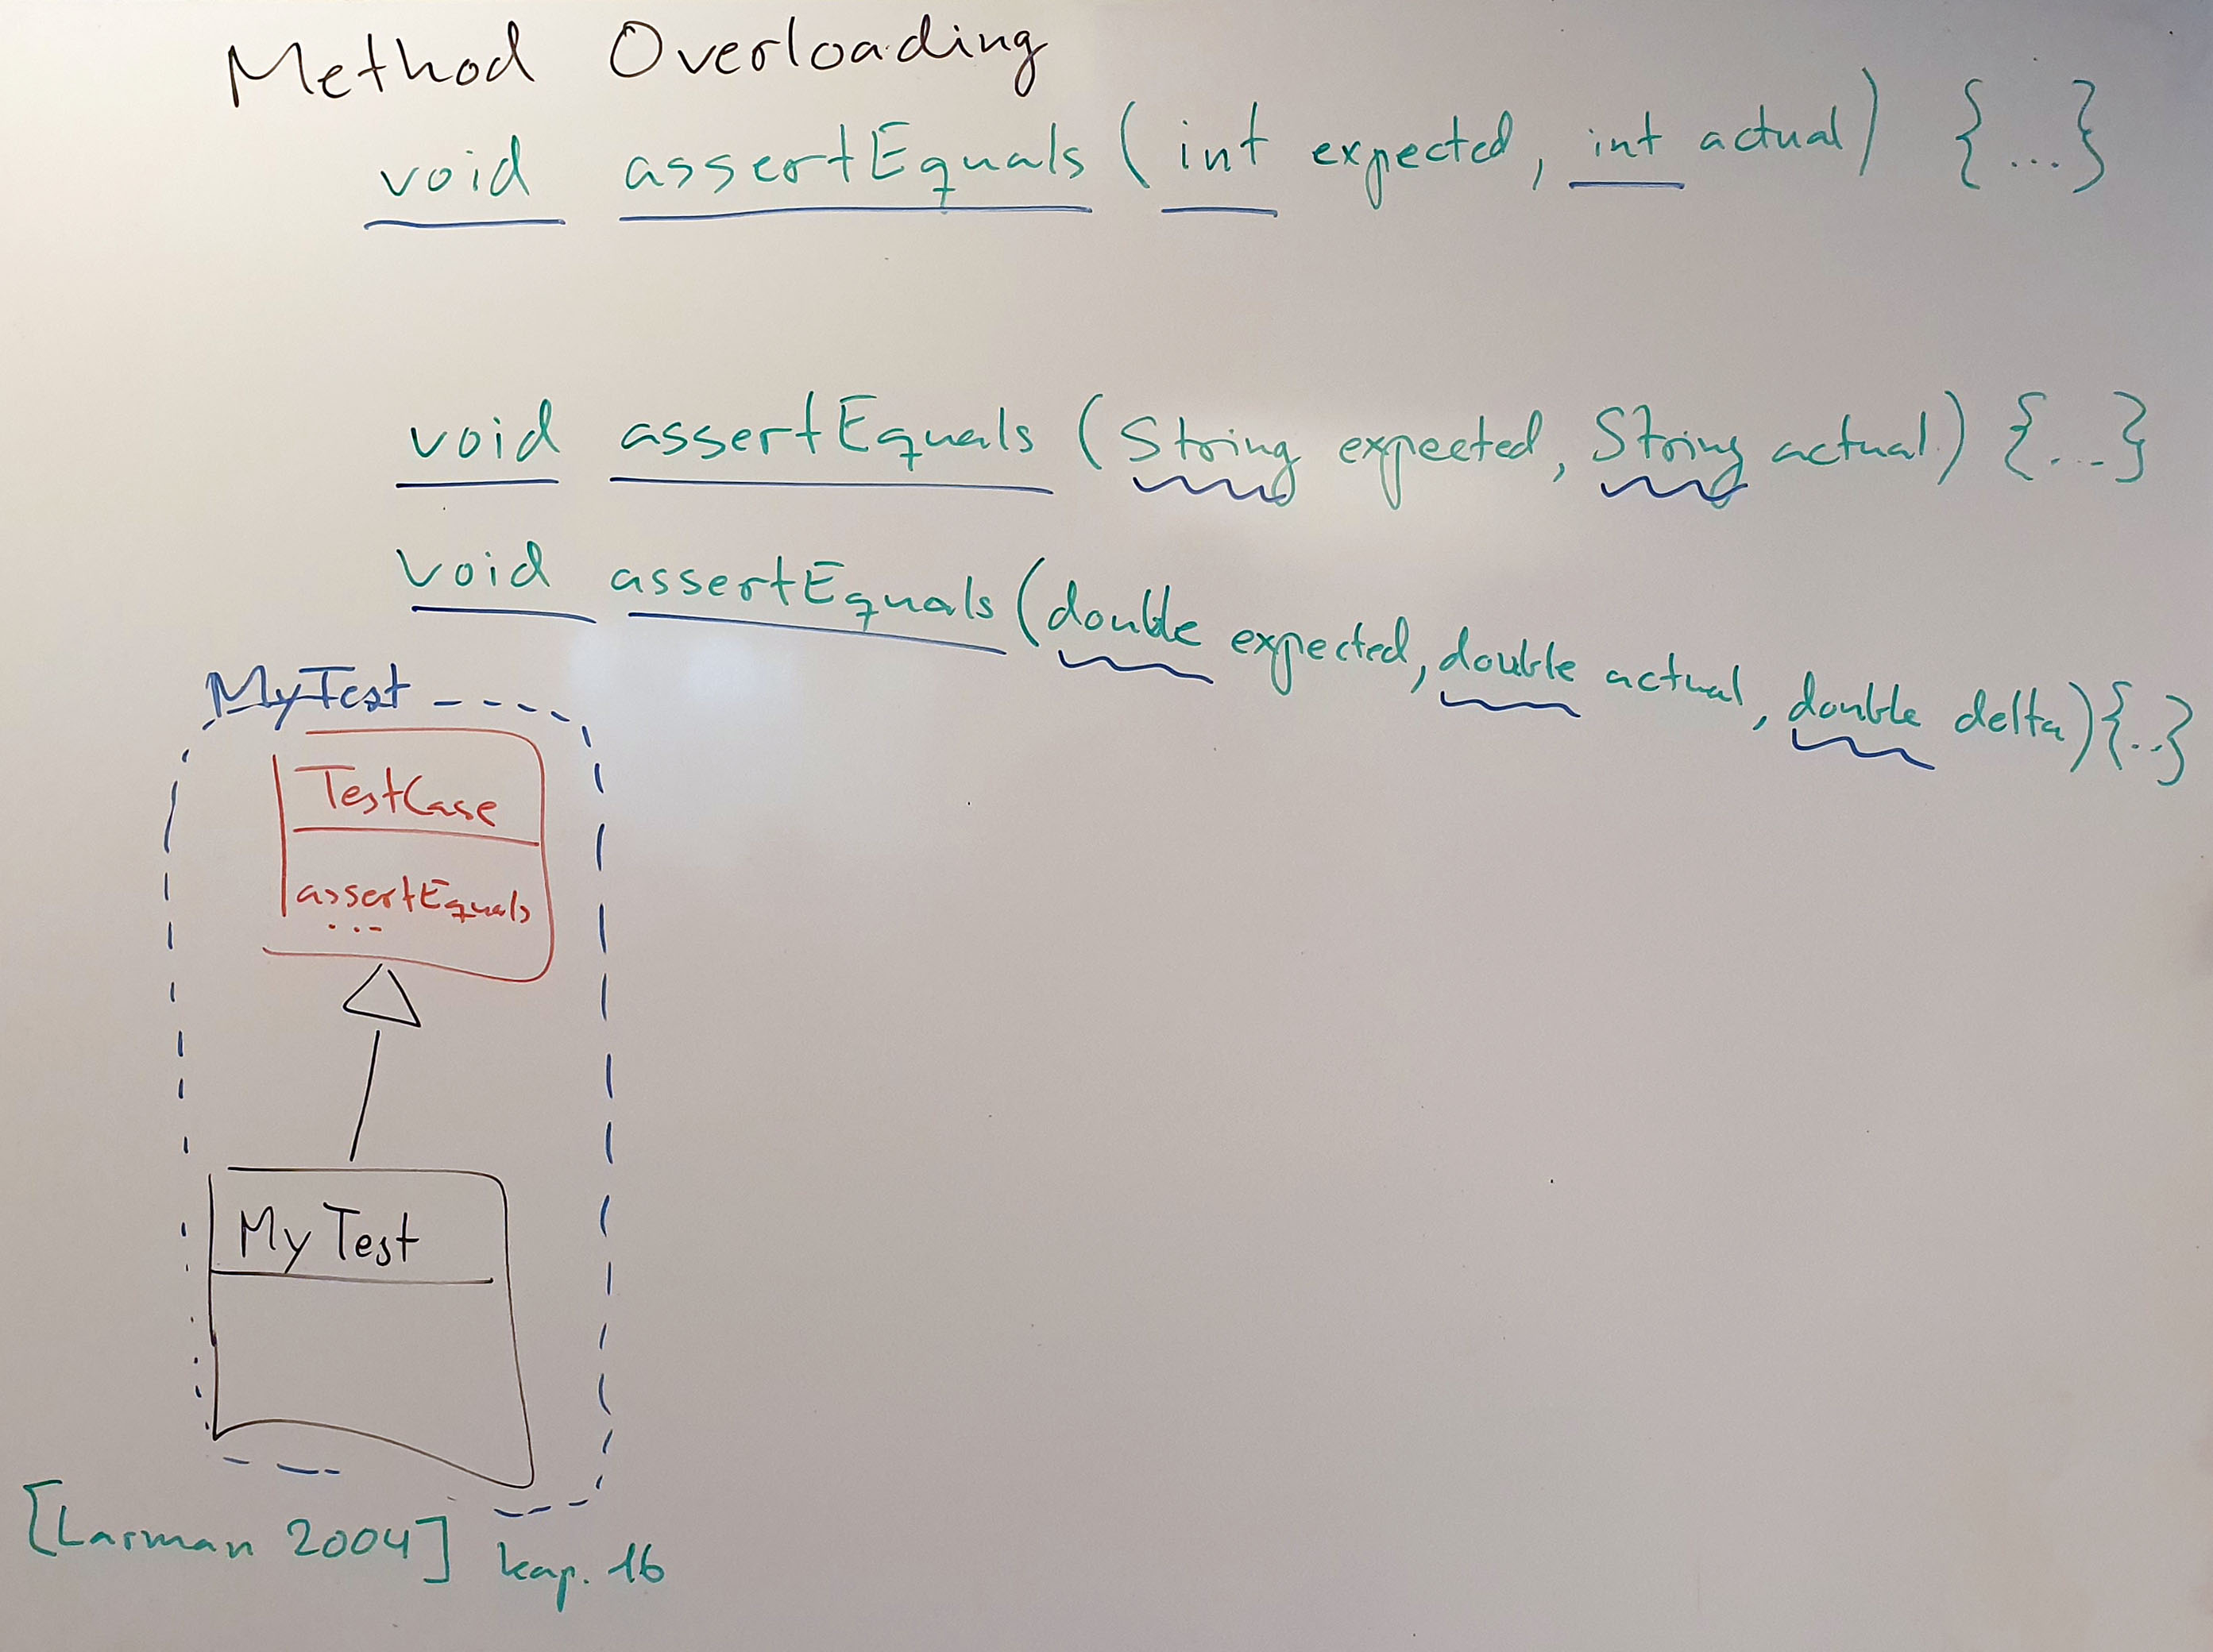 Method Overloading
void assertEquals (int expected, int actual) {...}
void assertEquals (String expected, String actual) {...}
void assertEquals (double expected, double actual, double delta) {..}
MyTest
TestCase
assertEquals
...
MyTest
[Larman 2004] kap. 16